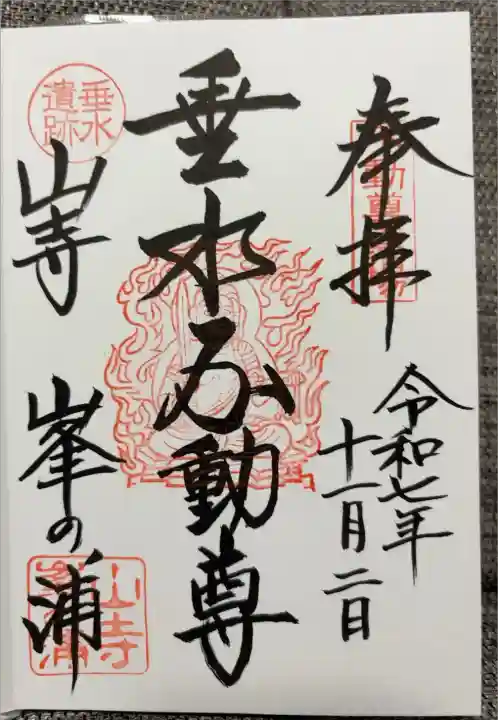 奉拝
令和七年
十一月二日
垂水不動尊
垂水
遺跡
山寺 峯の浦
山寺